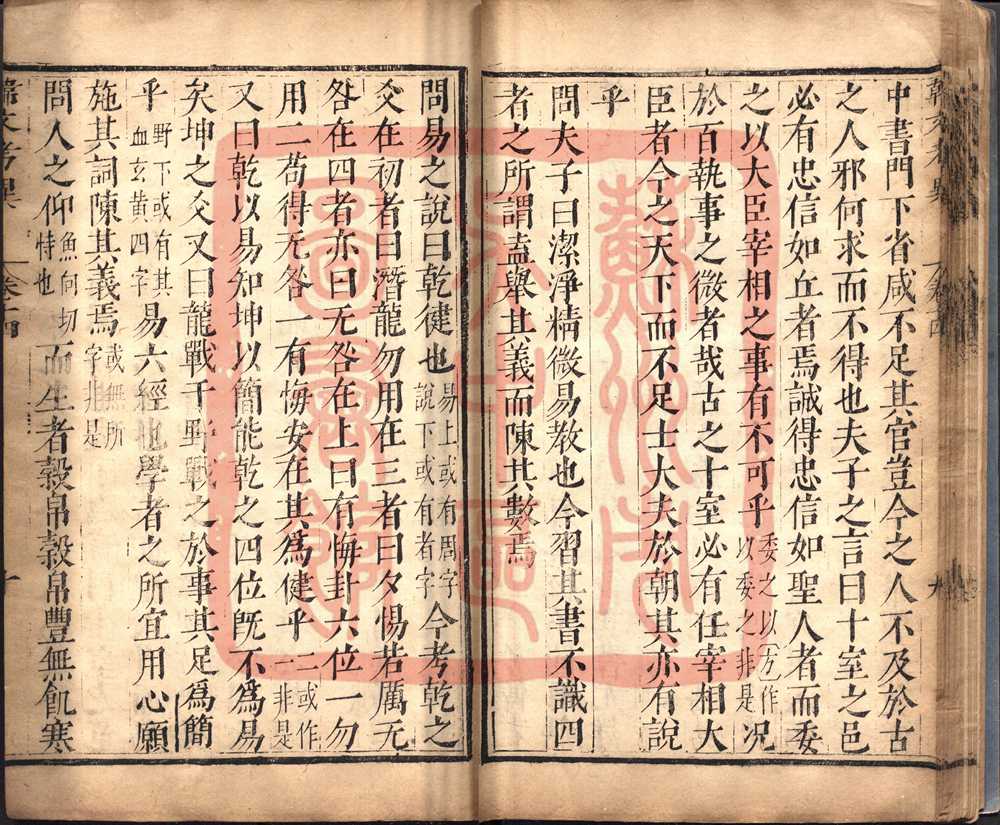 中書門下省咸不足其官豈今之人不及於古
之人邪何求而不得也夫子之言曰十室之邑
必有忠信如丘者焉誠得忠信如聖人者而委
之以大臣宰相之事有不可乎委之以方作以委之非是况
於百執事之微者哉古之十室必有任宰相大
臣者今之天下而不足士大夫於朝其亦有說
乎
問夫子曰潔淨精微易教也今習其書不識四
者之所謂盍舉其義而陳其數焉
問易之說曰乾健也易上或有周字說下或有者字今考乾之
爻在初者曰潛龍勿用在三者曰夕惕若厲无
咎在四者亦曰无咎在上曰有悔卦六位一勿
用二苟得无咎一有悔安在其爲健乎二或作一非是
又曰乾以易知坤以簡能乾之四位旣不爲易
矣坤之爻又曰龍戰于野戰之於事其足爲簡
乎野下或有其血玄黄四字易六經也學者之所宜用心願
施其詞陳其義焉或無所字非是
問人之仰魚向切恃也而生者榖帛榖帛豐無飢寒
卷十四
蘇州市
圖書館